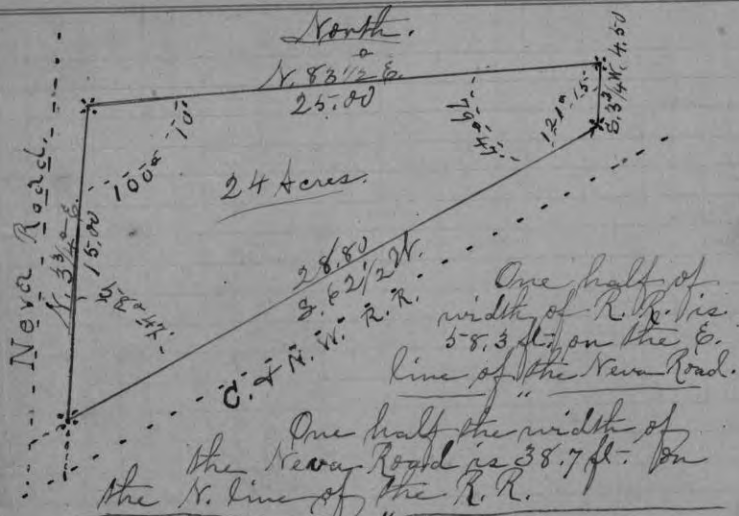 North.
N. 83 1/2° E.
25.00
S. 3 3/4 W. 4.50
Neva Road.
N. 3 3/4° E.
15.00
100° 10'
121° 15'
24 Acres.
28.80
S. 62 1/2 W.
C. & N. W. R. R.
One half of
width of R. R. is
58.3 ft. on the E.
line of the Neva Road.
One half the width of
the Neva Road is 38.7 ft. on
the N. line of the R. R.